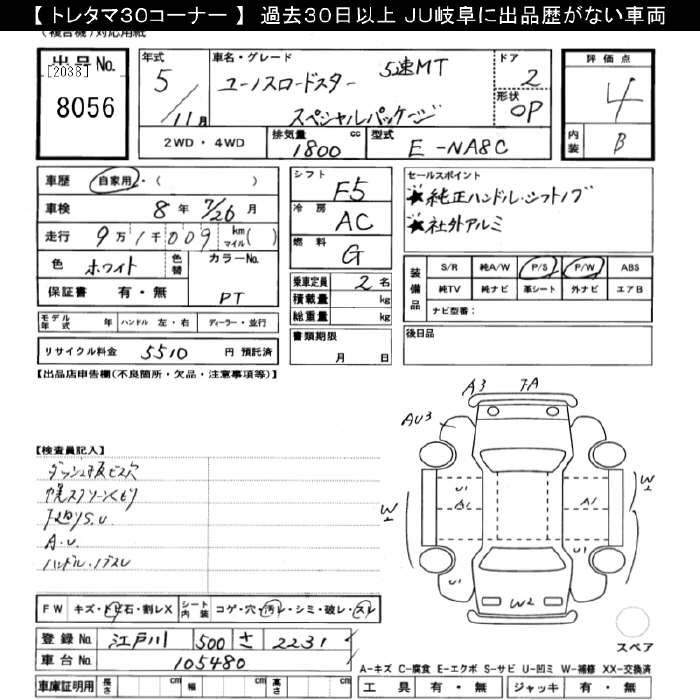 【 トレタマ30コーナー 】 過去30日以上 JU岐阜に出品歴がない車両
(複合機)対応用紙
出品No.
[2038]
8056
年式
5
11月
車名・グレード
5速MT
ユーノスロードスター
スペシャルパッケージ
ドア
2
形状
OP
評価点
4
内装
B
2WD ・ 4WD
排気量
cc
1800
型式
E-NA8C
車歴
自家用 ・ ( )
車検
8 年 7/26 月
走行
9万1千009 km マイル( )
色
ホワイト
色替
カラーNo.
PT
保証書 有 ・ 無
モデル年式 年 ハンドル 左・右 ディーラー・並行
リサイクル料金 5510 円 預託済
シフト
F5
冷房
AC
燃料
G
乗車定員 2 名
積載量 kg
総重量 kg
書類期限
月 日
セールスポイント
★純正ハンドル・シフトノブ
★社外アルミ
装備品
S/R 純A/W P/S P/W ABS
純TV 純ナビ 革シート 外ナビ エアB
ナビ型番:
後日品
【出品店申告欄(不良箇所・欠品・注意事項等)】
【検査員記入】
ダッシュ板ビス穴
幌スクリーンくもり
A.U
ハンドル・ノブスレ
A3
AU3
U1
A1
A1
W1
W1
U1
U1
W2
FW キズ・トビ石・割レX シート内装 コゲ・穴・汚レ・シミ・破レ・スレ
登録No. 江戸川 500 さ 2231
車台No. 105480
車庫証明用 長さ cm 幅 cm 高さ cm
スペア
A-キズ C-腐食 E-エクボ S-サビ U-凹ミ W-補修 XX-交換済
工具 有・無 ジャッキ 有・無